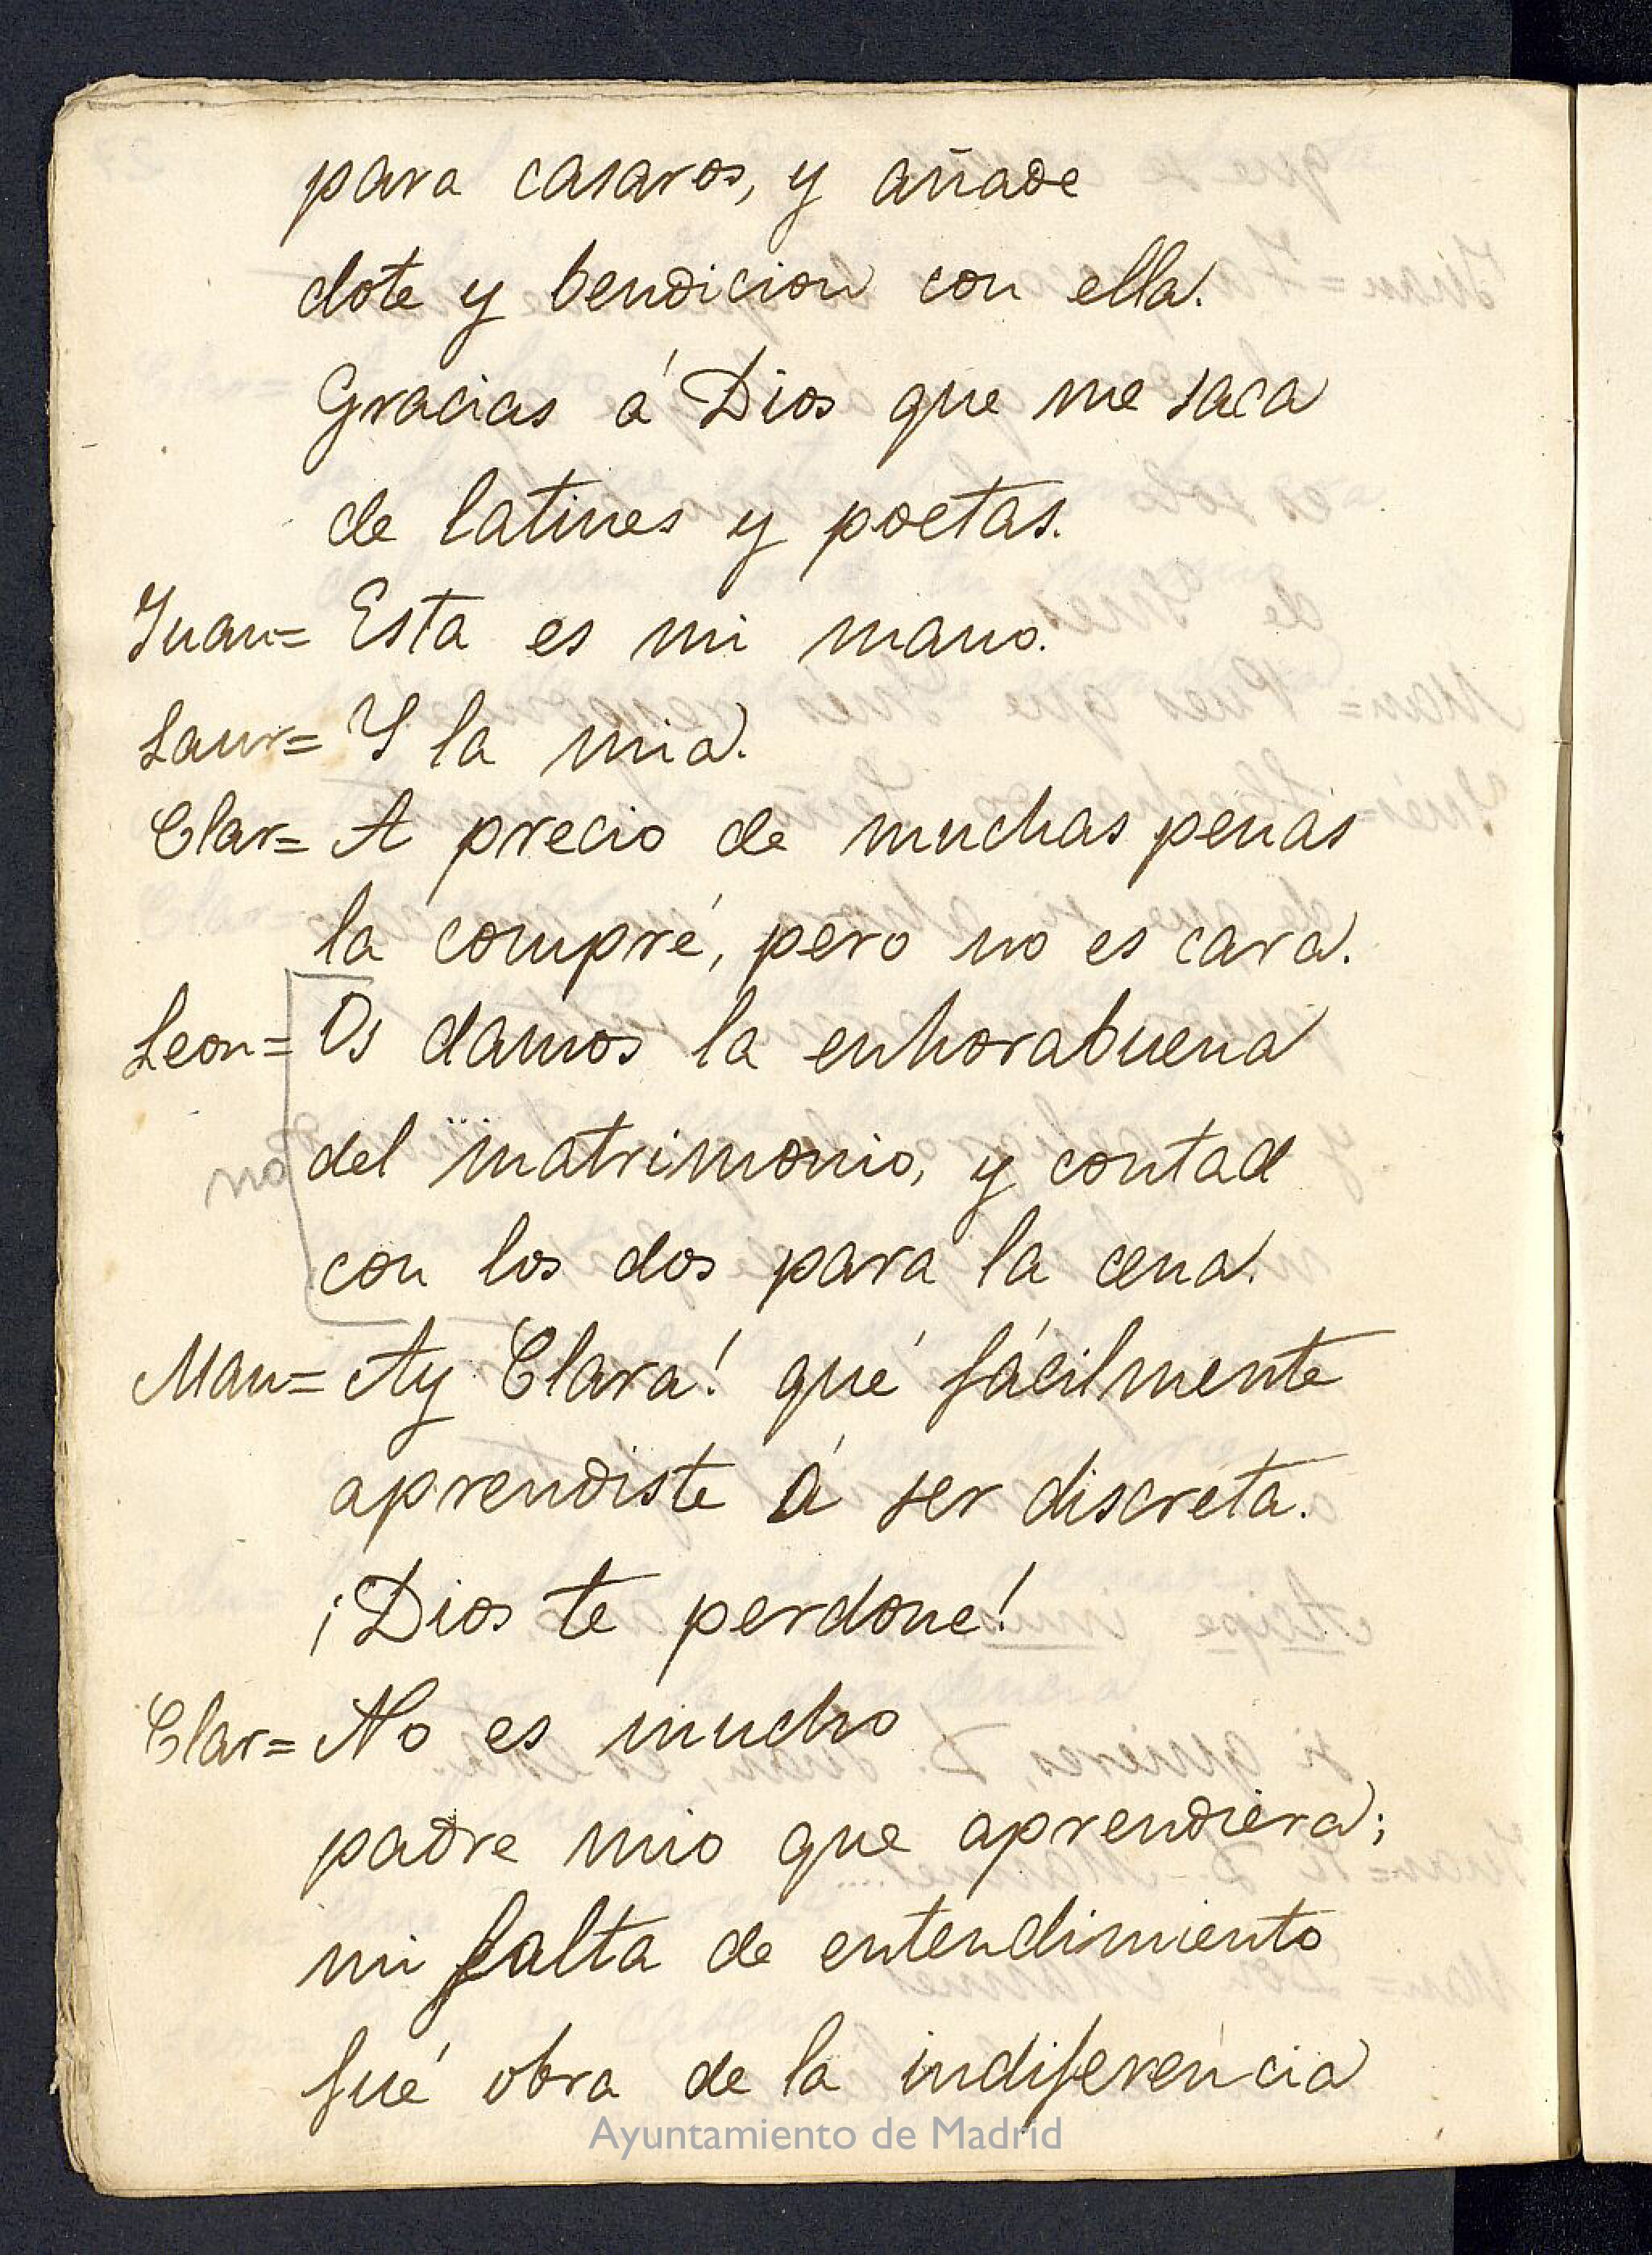 para casaros, y añade
dote y bendicion con ella.
Gracias á Dios que me saca
de latines y poetas.
Juan= Esta es mi mano.
Laur= Y la mia.
Clar= A precio de muchas penas
la compré, pero no es cara.
Leon= Os damos la enhorabuena
no del matrimonio, y contad
con los dos para la cena.
Man= Ay Clara! qué fácilmente
aprendiste á ser discreta.
¡Dios te perdone!
Clar= No es mucho
padre mio que aprendiera;
mi falta de entendimiento
fué obra de la indiferencia
Ayuntamiento de Madrid